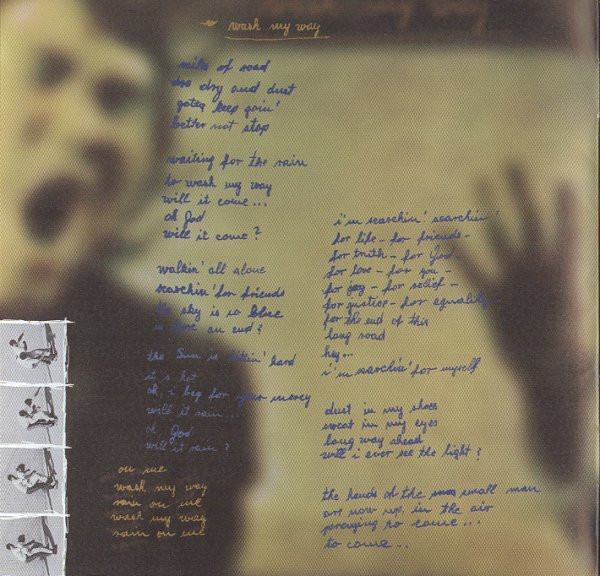 wash my way
miles of road
dry and dust
gotta keep goin'
better not stop
waiting for the rain
to wash my way
will it come...
oh God
will it come?
walkin' all alone
searchin' for friends
the sky is so blue
is there an end?
the Sun is hittin' hard
it's hot
oh, i beg for your mercy
will it rain...
oh God
will it rain?
on me
wash my way
rain on me
wash my way
rain on me
i'm searchin' searchin'
for life - for friends -
for truth - for God -
for love - for you -
for joy - for relief -
for justice - for equality -
for the end of this
long road
hey...
i'm searchin' for myself
dust in my shoes
sweat in my eyes
long way ahead
will i ever see the light?
the hands of the small man
are now up, in the air
praying to come...
to come...